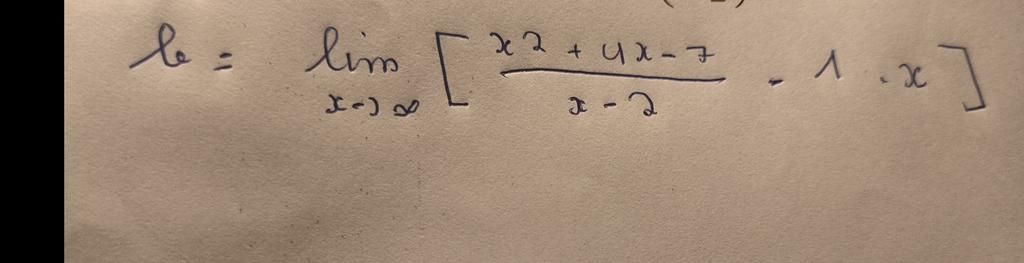 b = lim [ x2 + 4x - 7 / x - 2 - 1 . x ]
x -> ∞